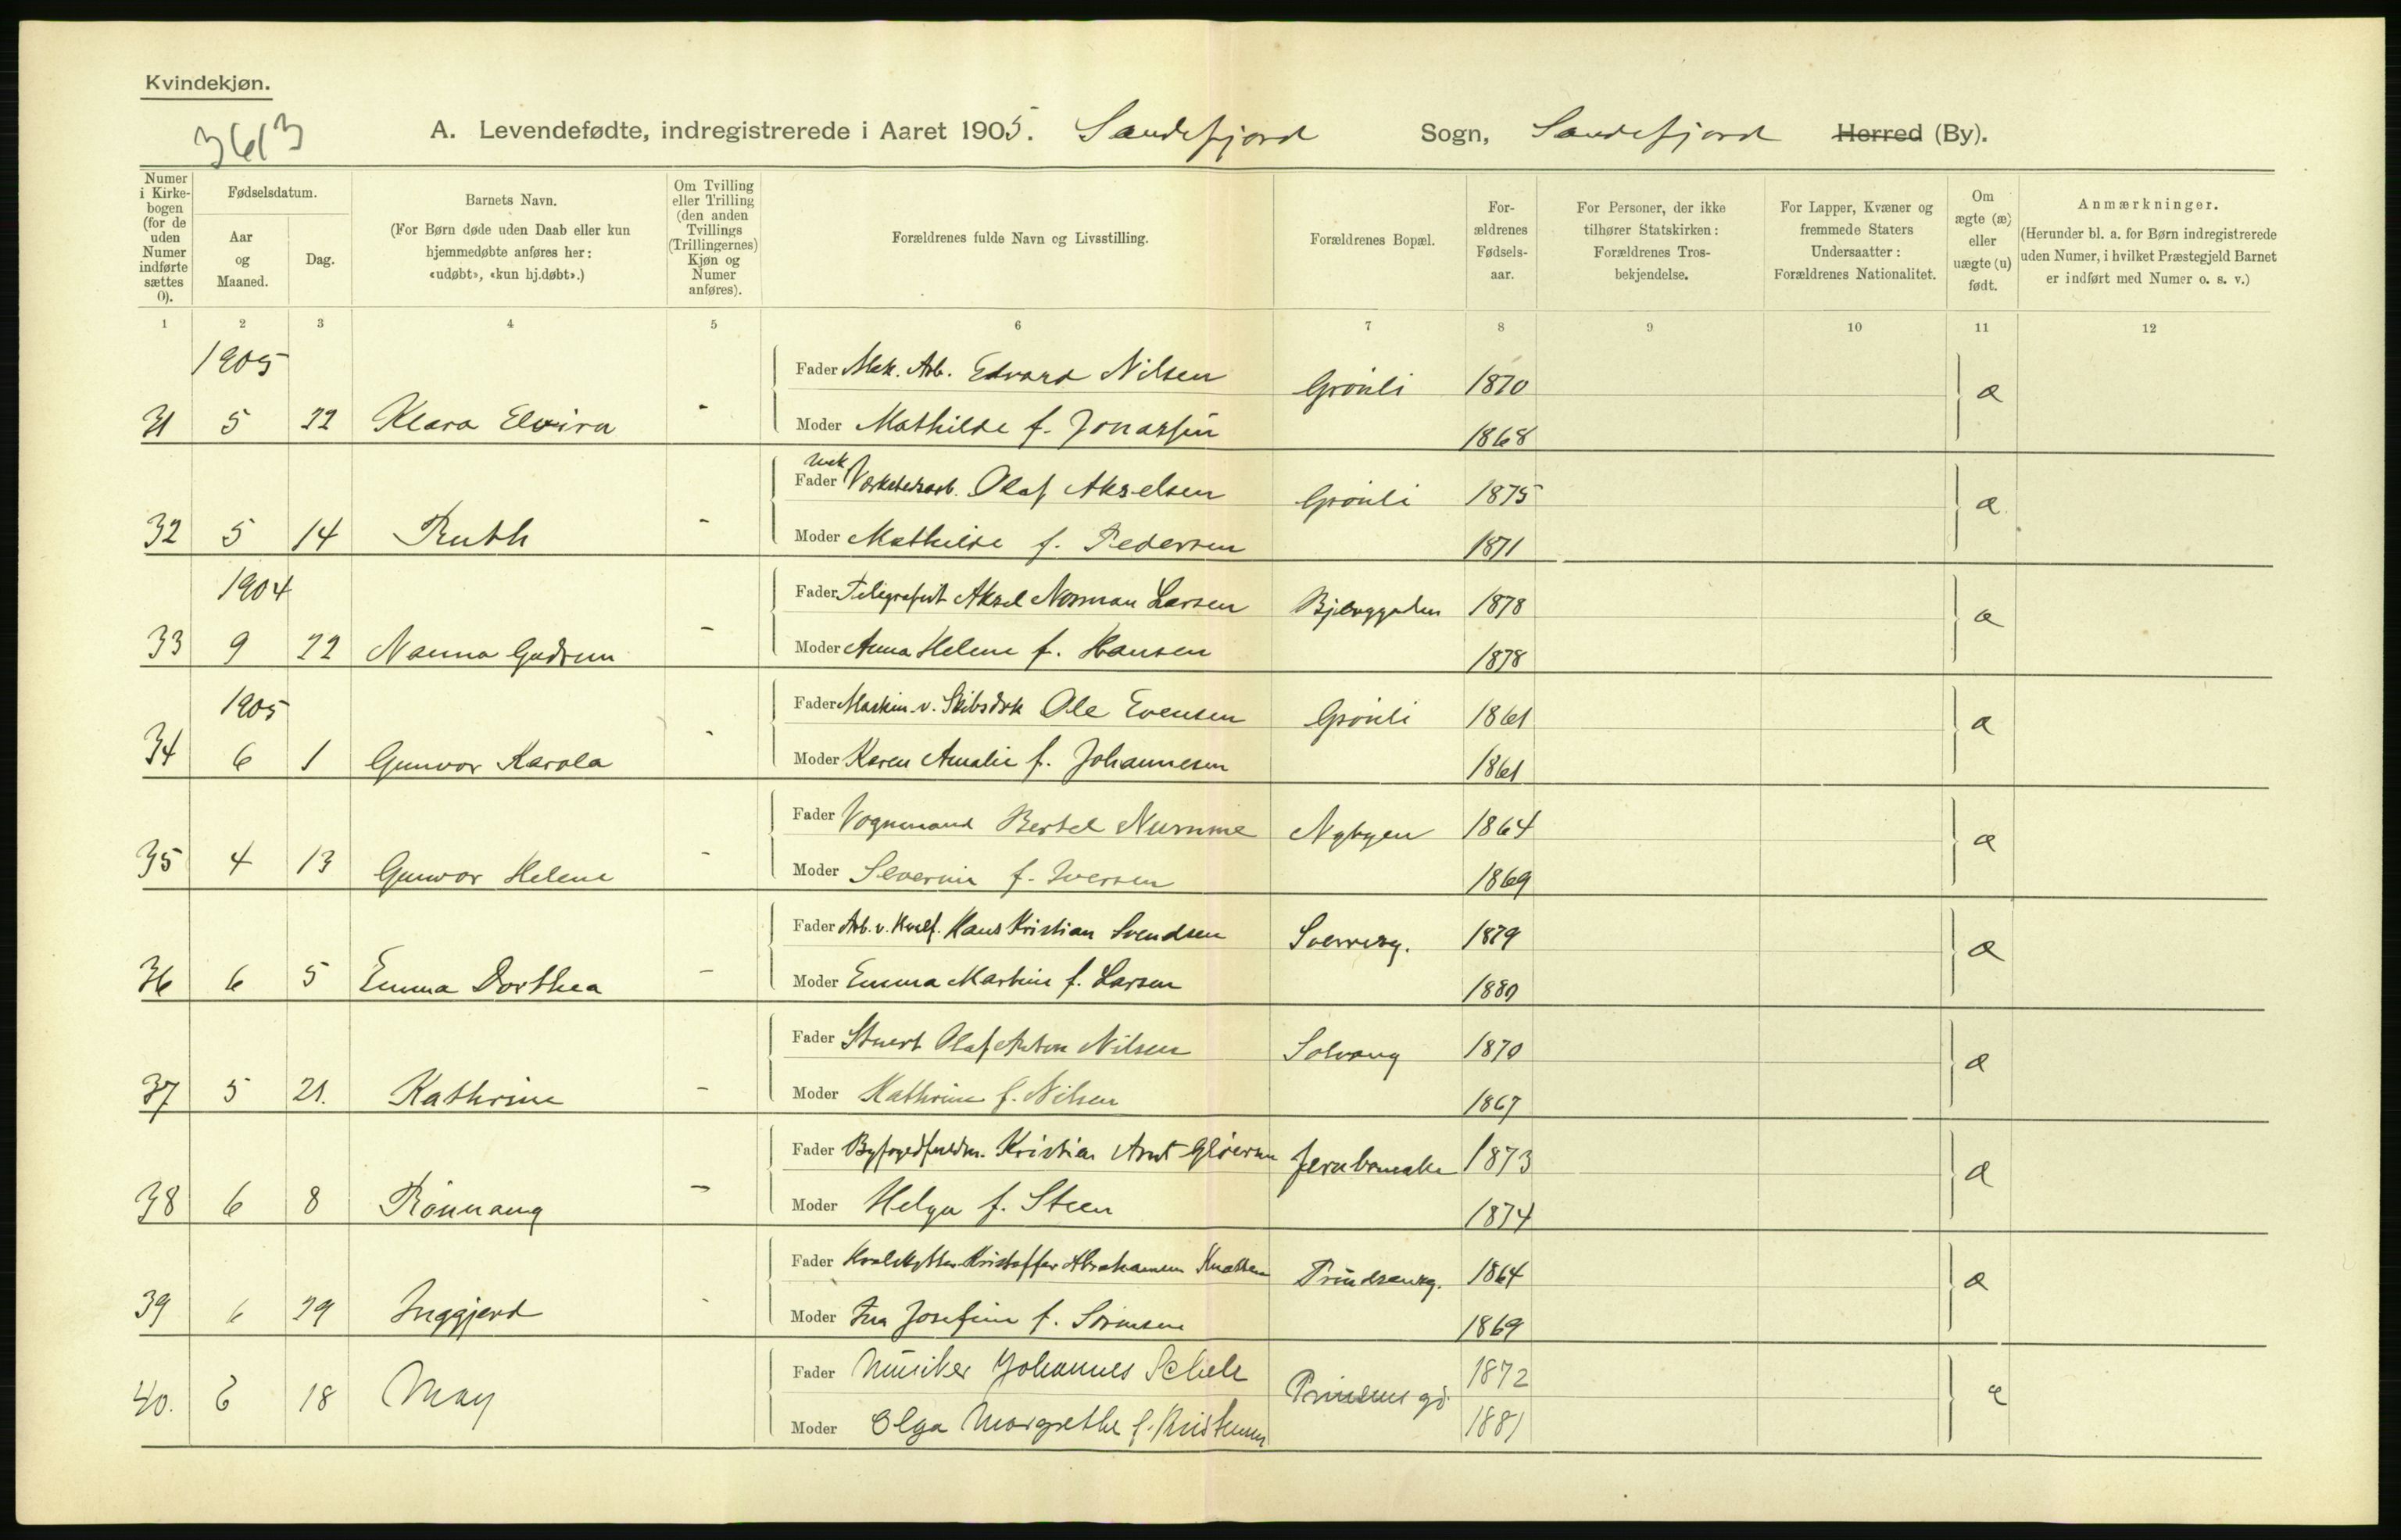 Kvindekjøn.
3613
A. Levendefødte, indregistrerede i Aaret 1905. Sandefjord Sogn, Sandefjord Herred (By).
Numer i Kirke-bogen (for de uden Numer indførte sættes 0).
Fødselsdatum.
Aar og Maaned.
Dag.
Barnets Navn.
(For Børn døde uden Daab eller kun hjemmedøbte anføres her: «udøbt», «kun hj.døbt».)
Om Tvilling eller Trilling (den anden Tvillings (Trillingernes) Kjøn og Numer anføres).
Forældrenes fulde Navn og Livsstilling.
Forældrenes Bopæl.
For-ældrenes Fødsels-aar.
For Personer, der ikke tilhører Statskirken: Forældrenes Tros-bekjendelse.
For Lapper, Kvæner og fremmede Staters Undersaatter: Forældrenes Nationalitet.
Om ægte (æ) eller uægte (u) født.
Anmærkninger.
(Herunder bl. a. for Børn indregistrerede uden Numer, i hvilket Præstegjeld Barnet er indført med Numer o. s. v.)
1 2 3 4 5 6 7 8 9 10 11 12
1905
Fader Mek. Arb. Edvard Nilsen Grönli 1870 æ
31 5 22 Klara Elvira - Moder Mathilde f. Jonassen 1868
Fader mek Værkstedsarb. Olaf Akselsen Grönli 1875 æ
32 5 14 Ruth - Moder Mathilde f. Pedersen 1871
1904
Fader Telegrafist Aksel Norman Larsen Bjerggaden 1878 æ
33 9 22 Nanna Gudrun - Moder Anna Helene f. Hansen 1878
1905
Fader Maskin. v. Skibsdok Ole Evensen Grönli 1861 æ
34 6 1 Gunvor Karola - Moder Karen Amalie f. Johannesen 1861
Fader Vognmand Bertel Numme Nybyen 1864 æ
35 4 13 Gunvor Helene - Moder Severine f. Iversen 1869
Fader Arb. v. Hvalf. Hans Kristian Svendsen Sverresg. 1879 æ
36 6 5 Emma Dorthea - Moder Emma Martine f. Larsen 1880
Fader Stuert Olaf Anton Nilsen Solvang 1870 æ
37 5 21. Kathrine - Moder Kathrine f. Nilsen 1867
Fader Byfogedfuldm. Kristian Arnt Glöersen Jernbanealle 1873 æ
38 6 8 Rönnaug - Moder Helga f. Steen 1874
Fader Hvalskytter Kristoffer Abrahamsen Knatten Prindsensg. 1864 æ
39 6 29 Inggjerd - Moder Ina Josefine f. Sörensen 1869
Fader Musiker Johannes Schele Prinsens gd. 1872 æ
40. 6 18 May Moder Olga Margrethe f. Kristensen 1881